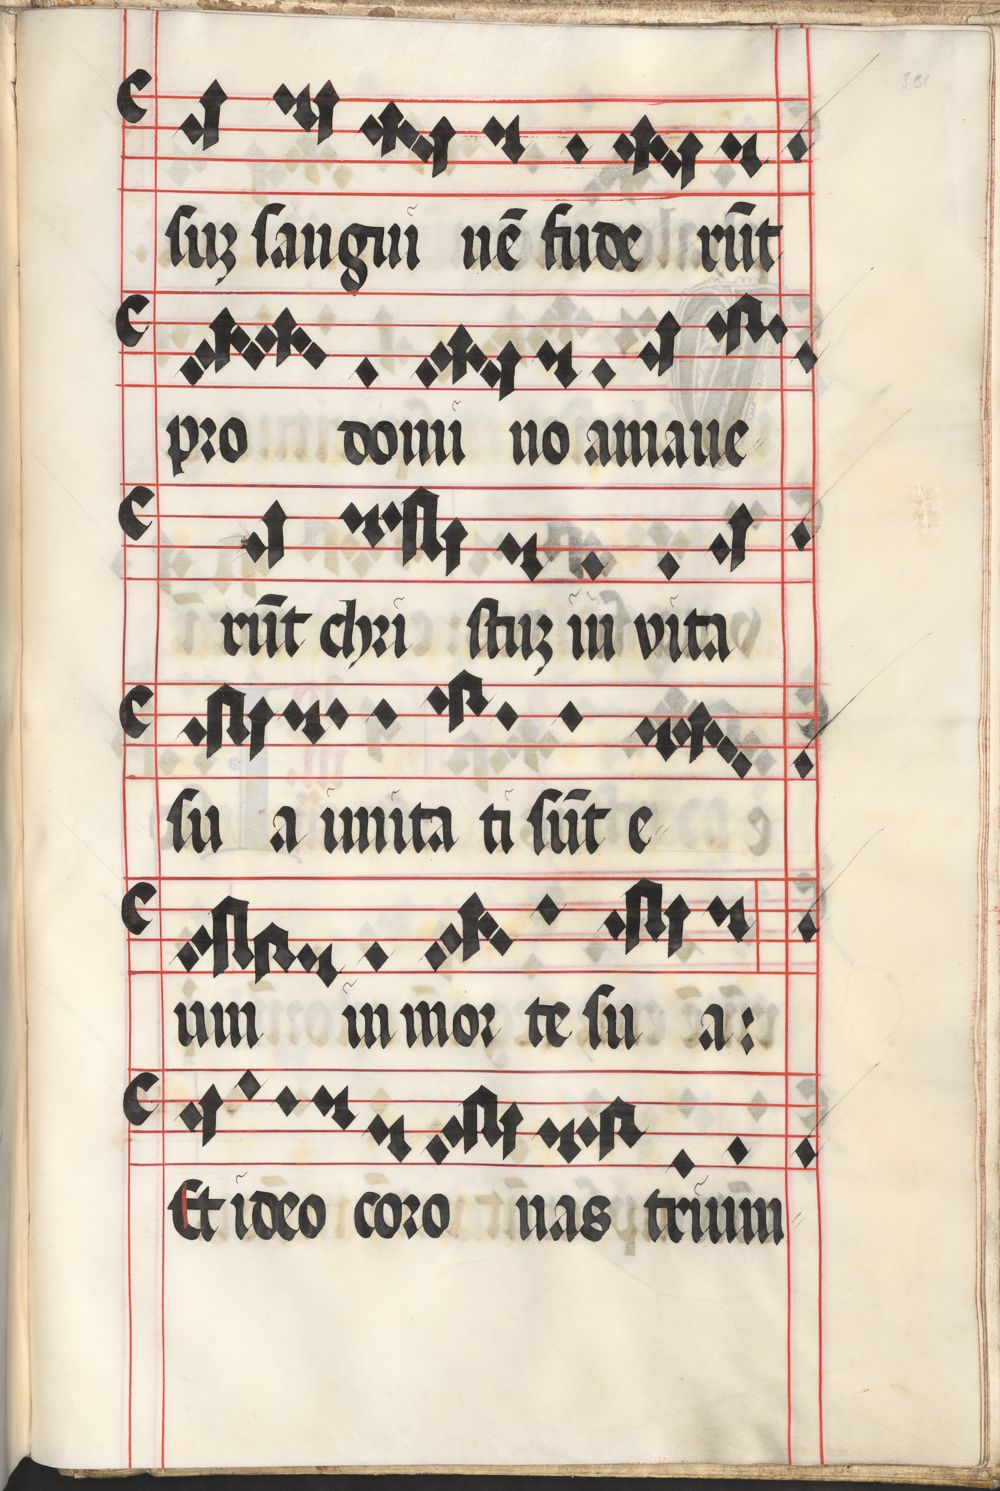 suꝫ sangui nē fude rūt
pro domi no amaue
rūt chri stuꝫ in vita
su a imita ti sūt e
um in mor te su a:
Et ideo coro nas trium